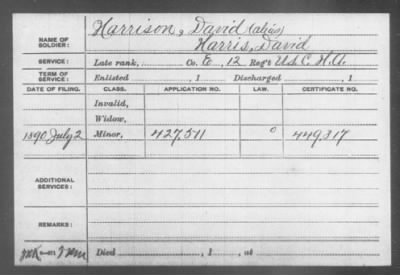 NAME OF SOLDIER: Harrison, David (alias)
Harris, David
SERVICE: Late rank, Co. E, 12 Reg't U.S.C.H.A.
TERM OF SERVICE: Enlisted , 1 Discharged , 1
DATE OF FILING. CLASS. APPLICATION NO. LAW. CERTIFICATE NO.
Invalid,
Widow,
1890 July 2 Minor, 427,511 0 449,317
ADDITIONAL SERVICES:
REMARKS:
Died , 1 , at